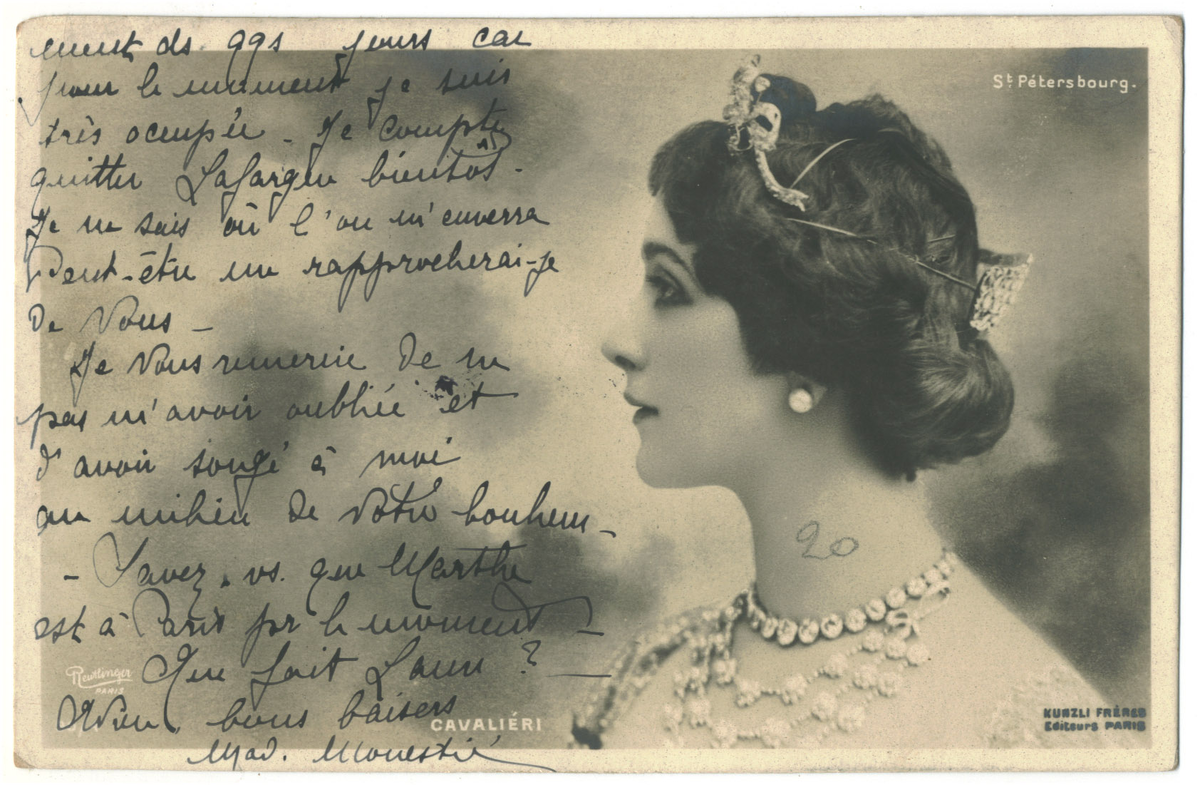 ment ds qqs jours car
pour le moment je suis
très occupée - Je compte
quitter Lafarque bientôt.
Je ne sais où l'on m'enverra
Peut-être me rapprocherai-je
de Vous -
Je Vous remercie de ne
pas m'avoir oubliée et
d'avoir songé à moi
au milieu de Votre bonheur -
- Savez-vs. que Marthe
est à Paris pr le moment -
Que fait Laure ?
Adieu, bons baisers
Mad. Monestié
St. Pétersbourg.
20
Reutlinger
PARIS
CAVALIÉRI
KUNZLI FRÈRES
Editeurs PARIS